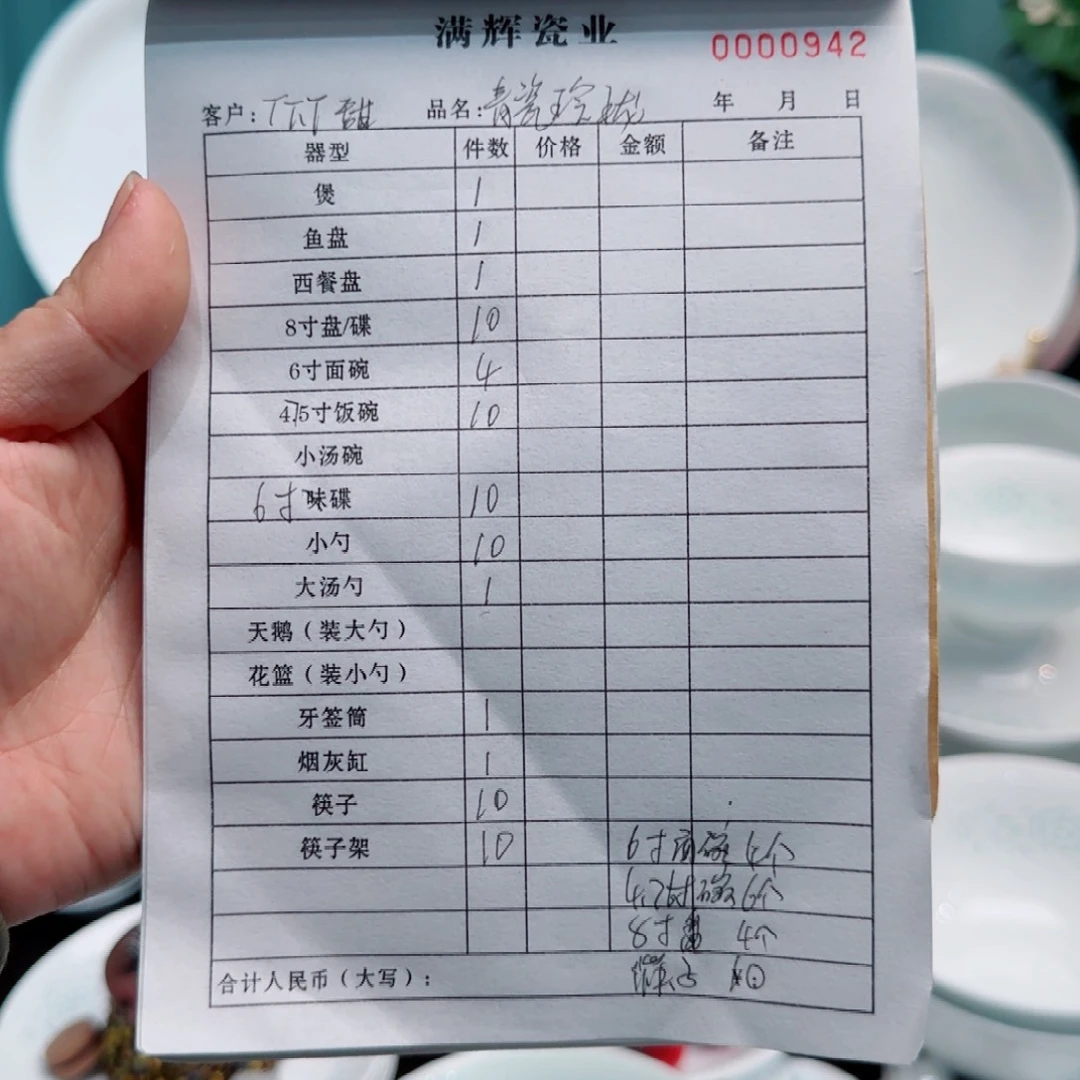 满辉瓷业
0000942
客户: 甜 品名: 青瓷玲珑 年 月 日
器型 件数 价格 金额 备注
煲 1
鱼盘 1
西餐盘 1
8寸盘/碟 10
6寸面碗 4
4.75寸饭碗 10
小汤碗
6寸味碟 10
小勺 10
大汤勺 1
天鹅(装大勺)
花篮(装小勺)
牙签筒 1
烟灰缸 1
筷子 10
筷子架 10 6寸面碗 4个
碗 6个
8寸 4个
合计人民币(大写):